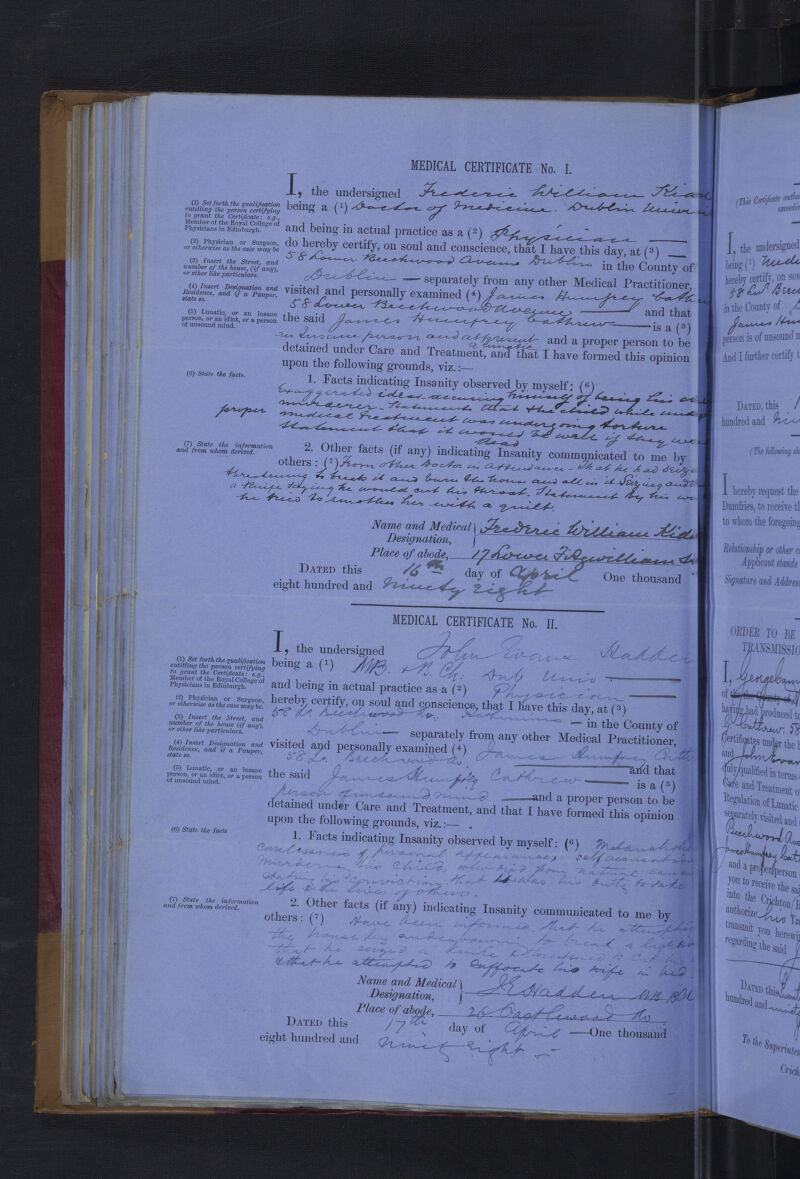 MEDICAL CERTIFICATE No. I.
I, the undersigned Frederic William
being a (1) Doctor of Medicine. Dublin
and being in actual practice as a (2) Physician
do hereby certify, on soul and conscience, that I have this day, at (3)
58 Lower Beechwood Avenue Dublin in the County of
Dublin — separately from any other Medical Practitioner,
visited and personally examined (4) James Humfrey
58 Lower Beechwood Avenue — and that
the said James Humfrey Cathrew — is a (5)
an insane person and at present and a proper person to be
a lunatic
detained under Care and Treatment, and that I have formed this opinion
upon the following grounds, viz.:—
1. Facts indicating Insanity observed by myself: (6)
Exaggerated ideas accusing himself of being his
murderer. Statements that the child while
proper medical treatment was undergoing torture
Statement that it would be well if they
dead
2. Other facts (if any) indicating Insanity communicated to me by
others: (7) From other Doctor in attendance - That he had
threatening to break it and burn the house and all in it Seizing and
a knife saying he would cut his throat. Statement by his
he tried to smother her with a quilt.
Name and Medical Designation, Frederic William
Place of abode, 17 Lower Fitzwilliam
DATED this 16th day of April One thousand
eight hundred and Ninety Eight
(1) Set forth the qualification entitling the person certifying to grant the Certificate; e.g., Member of the Royal College of Physicians in Edinburgh.
(2) Physician or Surgeon, or otherwise as the case may be
(3) Insert the Street, and number of the house, (if any), or other like particulars.
(4) Insert Designation and Residence, and if a Pauper, state so.
(5) Lunatic, or an insane person, or an idiot, or a person of unsound mind.
(6) State the facts.
(7) State the information and from whom derived.
MEDICAL CERTIFICATE No. II.
I, the undersigned John Evans
being a (1) MB. & B. Ch. Dub Univ
and being in actual practice as a (2) Physician
hereby certify, on soul and conscience, that I have this day, at (3)
58 Lr. Beechwood Av. Rathmines — in the County of
Dublin — separately from any other Medical Practitioner,
visited and personally examined (4) James Humfrey
58 Lr. Beechwood Av. and that
the said James Humfrey Cathrew — is a (5)
person of unsound mind — and a proper person to be
detained under Care and Treatment, and that I have formed this opinion
upon the following grounds, viz.:—
1. Facts indicating Insanity observed by myself: (6)
carelessness of personal appearances self accusation
murdering his child, who died from natural
stating his conviction that it was his duty to take
life & the lives of others.
2. Other facts (if any) indicating Insanity communicated to me by
others: (7) Have been informed that he
the house by endeavouring to break a
that he seized a knife & threatened to cut his
& that he attempted to suffocate his wife in bed
Name and Medical Designation, J E Hadden
Place of abode, 26 Castlewood Av
DATED this 17th day of April — One thousand
eight hundred and Ninety Eight —
(1) Set forth the qualification entitling the person certifying to grant the Certificate; e.g., Member of the Royal College of Physicians in Edinburgh.
(2) Physician or Surgeon, or otherwise as the case may be.
(3) Insert the Street, and number of the house (if any), or other like particulars.
(4) Insert Designation and Residence, and if a Pauper, state so.
(5) Lunatic, or an insane person, or an idiot, or a person of unsound mind.
(6) State the facts
(7) State the information and from whom derived.
(This Certificate
I, the undersigned
being (1)
hereby certify, on
58 Lr.
in the County of
James
person is of unsound
And I further certify
DATED, this
hundred and
(The following
I hereby request the
Dumfries, to receive
to whom the foregoing
Relationship or other
Applicant stands
Signature and
ORDER TO BE
I,
of
having had produced
Certificates under the
and John
duly qualified in terms
Care and Treatment
Regulation of Lunatic
separately visited and
Beechwood
and a proper person
you to receive the
into the Crichton
authorize
transmit you
regarding the said
DATED this
hundred and
To the